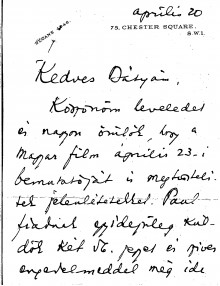 április 20
75, CHESTER SQUARE,
S.W.1.
Kedves Bátyám,
Köszönöm leveledet
és nagyon örülök, hogy a
Magyar film április 23-i
bemutatóját is megtisztel-
tek jelenlétetekkel. Paul
fiadnak egyidejüleg kül-
dök két db. jegyet és szives
engedelmeddel még ide